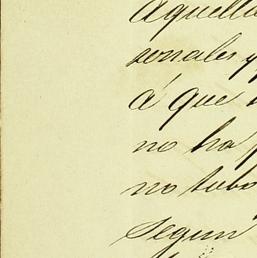 Aquella
sonales y
á que
no ha
no tubo
Segun